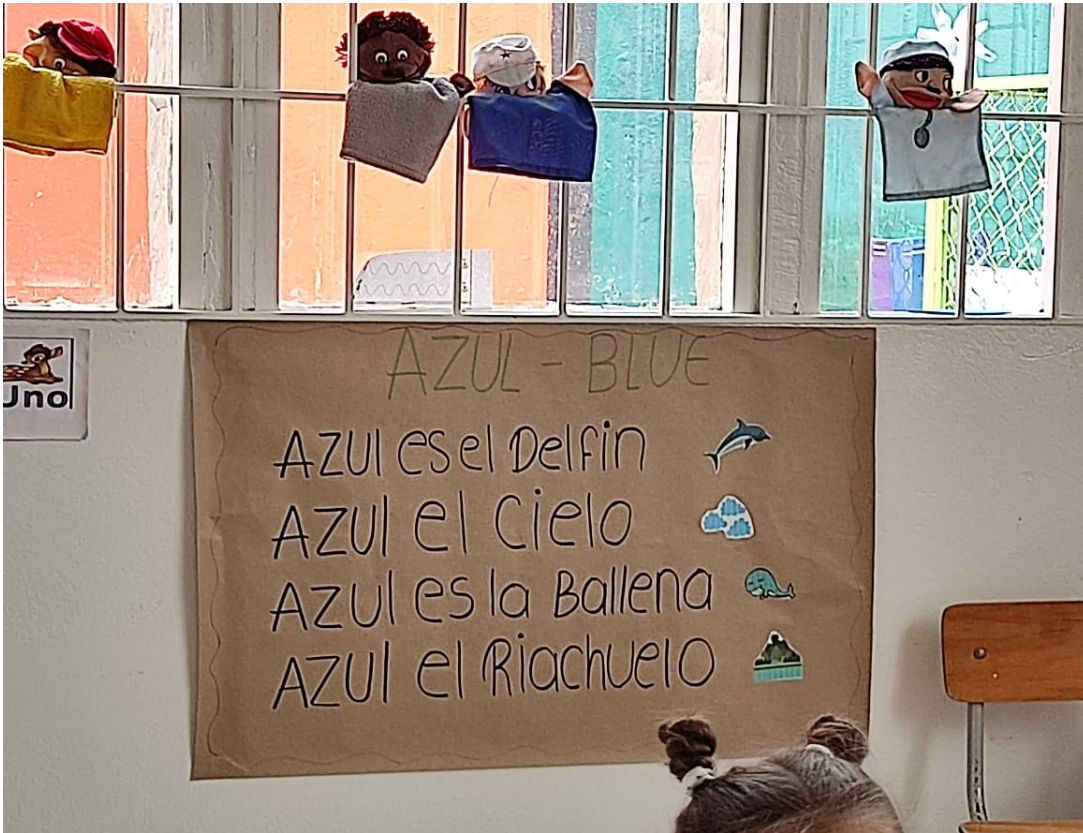 Uno
AZUL - BLUE
AZUl es el Delfin
AZUl el Cielo
AZUl es la Ballena
AZUl el Riachuelo